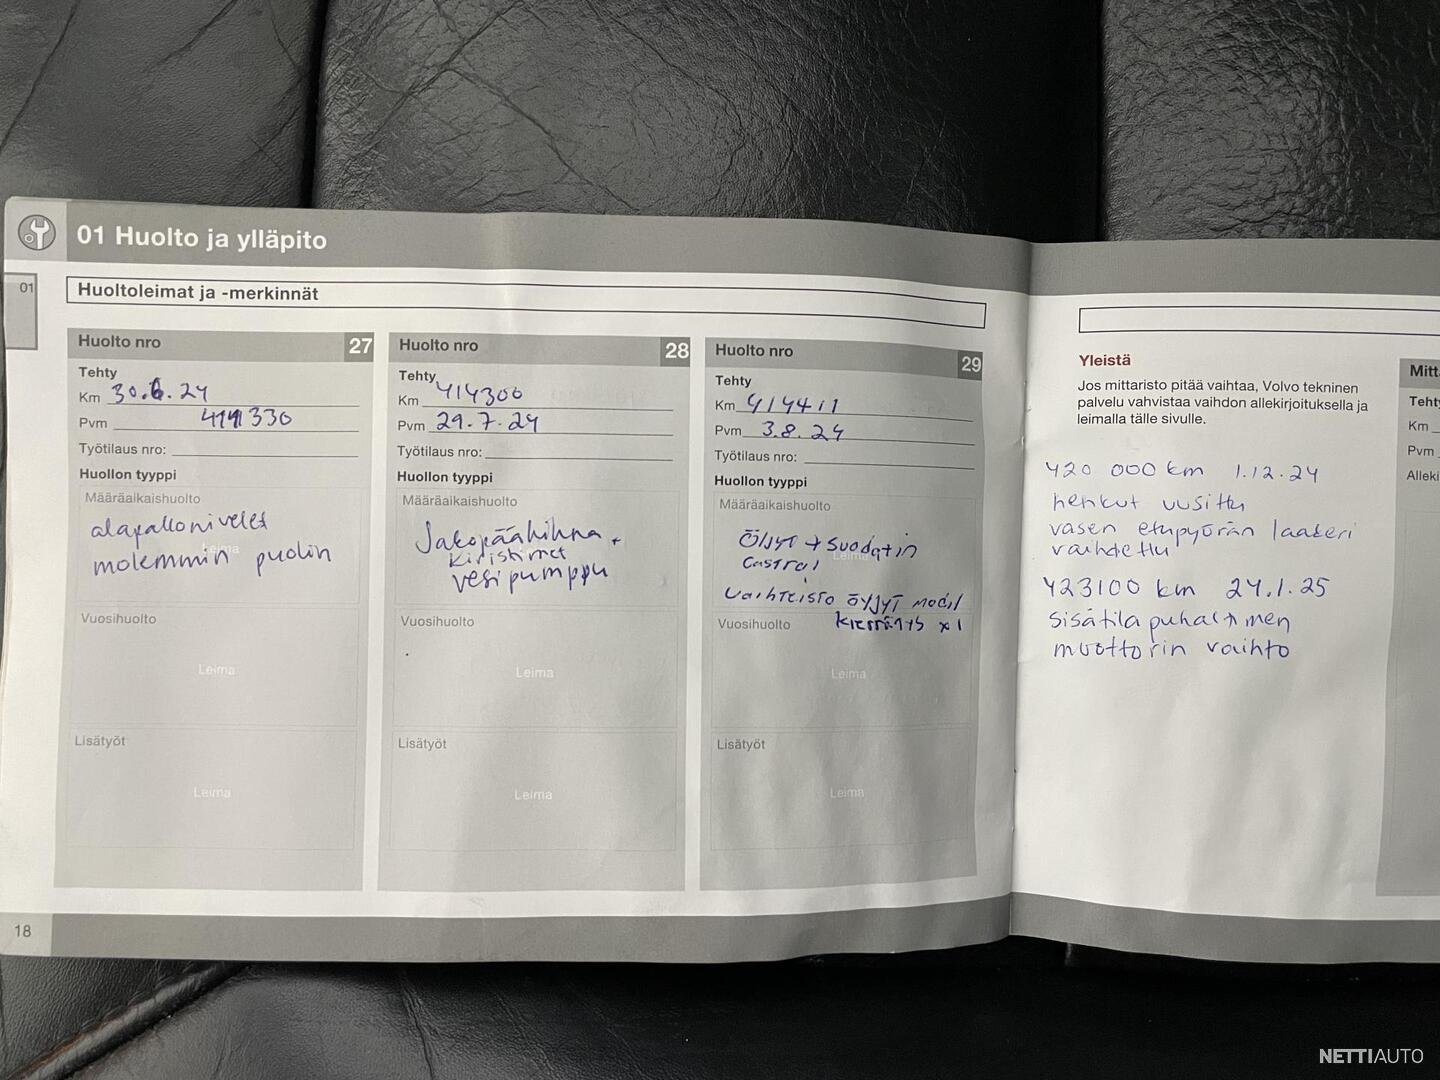 01 Huolto ja ylläpito
01
Huoltoleimat ja -merkinnät
Huolto nro 27
Tehty
Km 30.6.24
Pvm 411330
Työtilaus nro:
Huollon tyyppi
Määräaikaishuolto
alapallonivelet
molemmin puolin
Vuosihuolto
Leima
Lisätyöt
Leima
Huolto nro 28
Tehty
Km 414300
Pvm 29.7.24
Työtilaus nro:
Huollon tyyppi
Määräaikaishuolto
Jakopäähihna +
kiristimet
vesipumppu
Vuosihuolto
Leima
Lisätyöt
Leima
Huolto nro 29
Tehty
Km 414411
Pvm 3.8.24
Työtilaus nro:
Huollon tyyppi
Määräaikaishuolto
Öljyt + Suodatin
Castrol
vaihteisto öljyt mobil
Vuosihuolto kierrätys x1
Leima
Lisätyöt
Leima
18
Yleistä
Jos mittaristo pitää vaihtaa, Volvo tekninen
palvelu vahvistaa vaihdon allekirjoituksella ja
leimalla tälle sivulle.
420 000 km 1.12.24
henkut uusittu
vasen etupyörän laakeri
vaihdettu
423100 km 24.1.25
sisätilapuhaltimen
muottorin vaihto
Mitt
Tehty
Km
Pvm
Alleki
NETTIAUTO